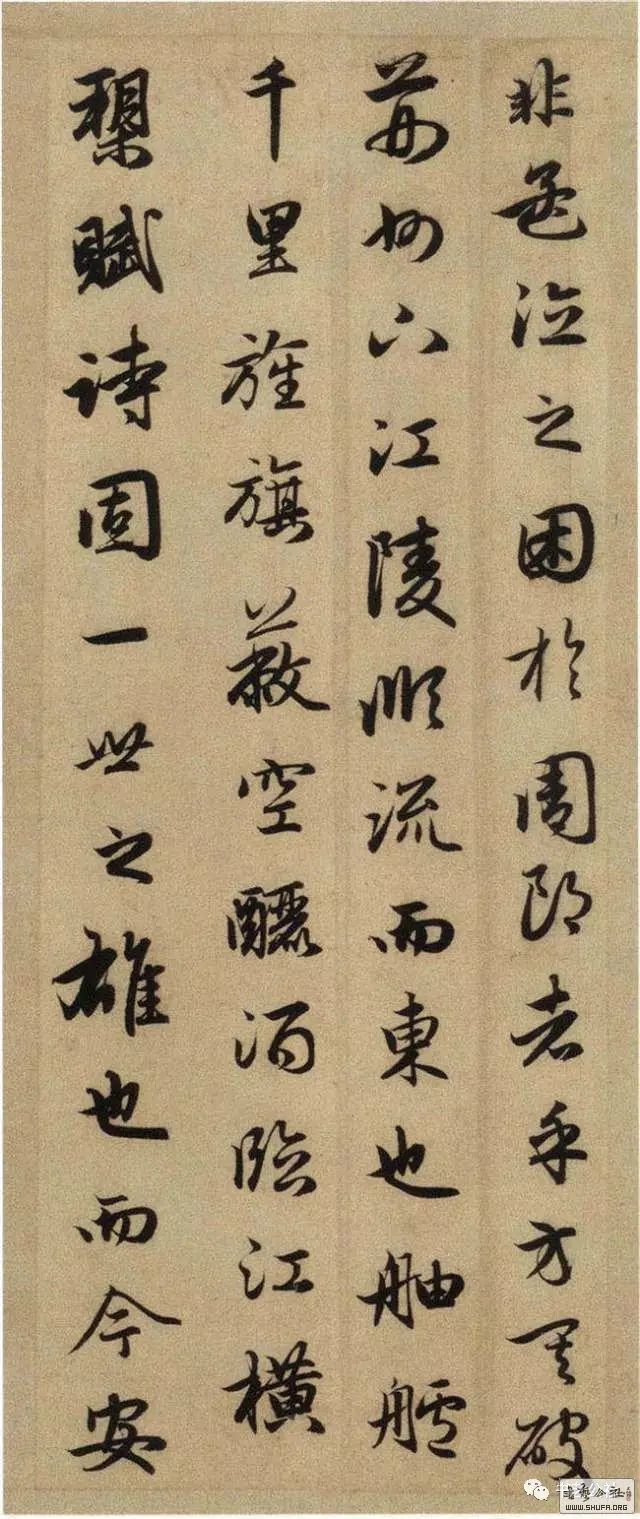 非孟德之困於周郎者乎方其破
荊州下江陵順流而東也舳艫
千里旌旗蔽空釃酒臨江橫
槊賦詩固一世之雄也而今安
WWW.SHUFA.ORG